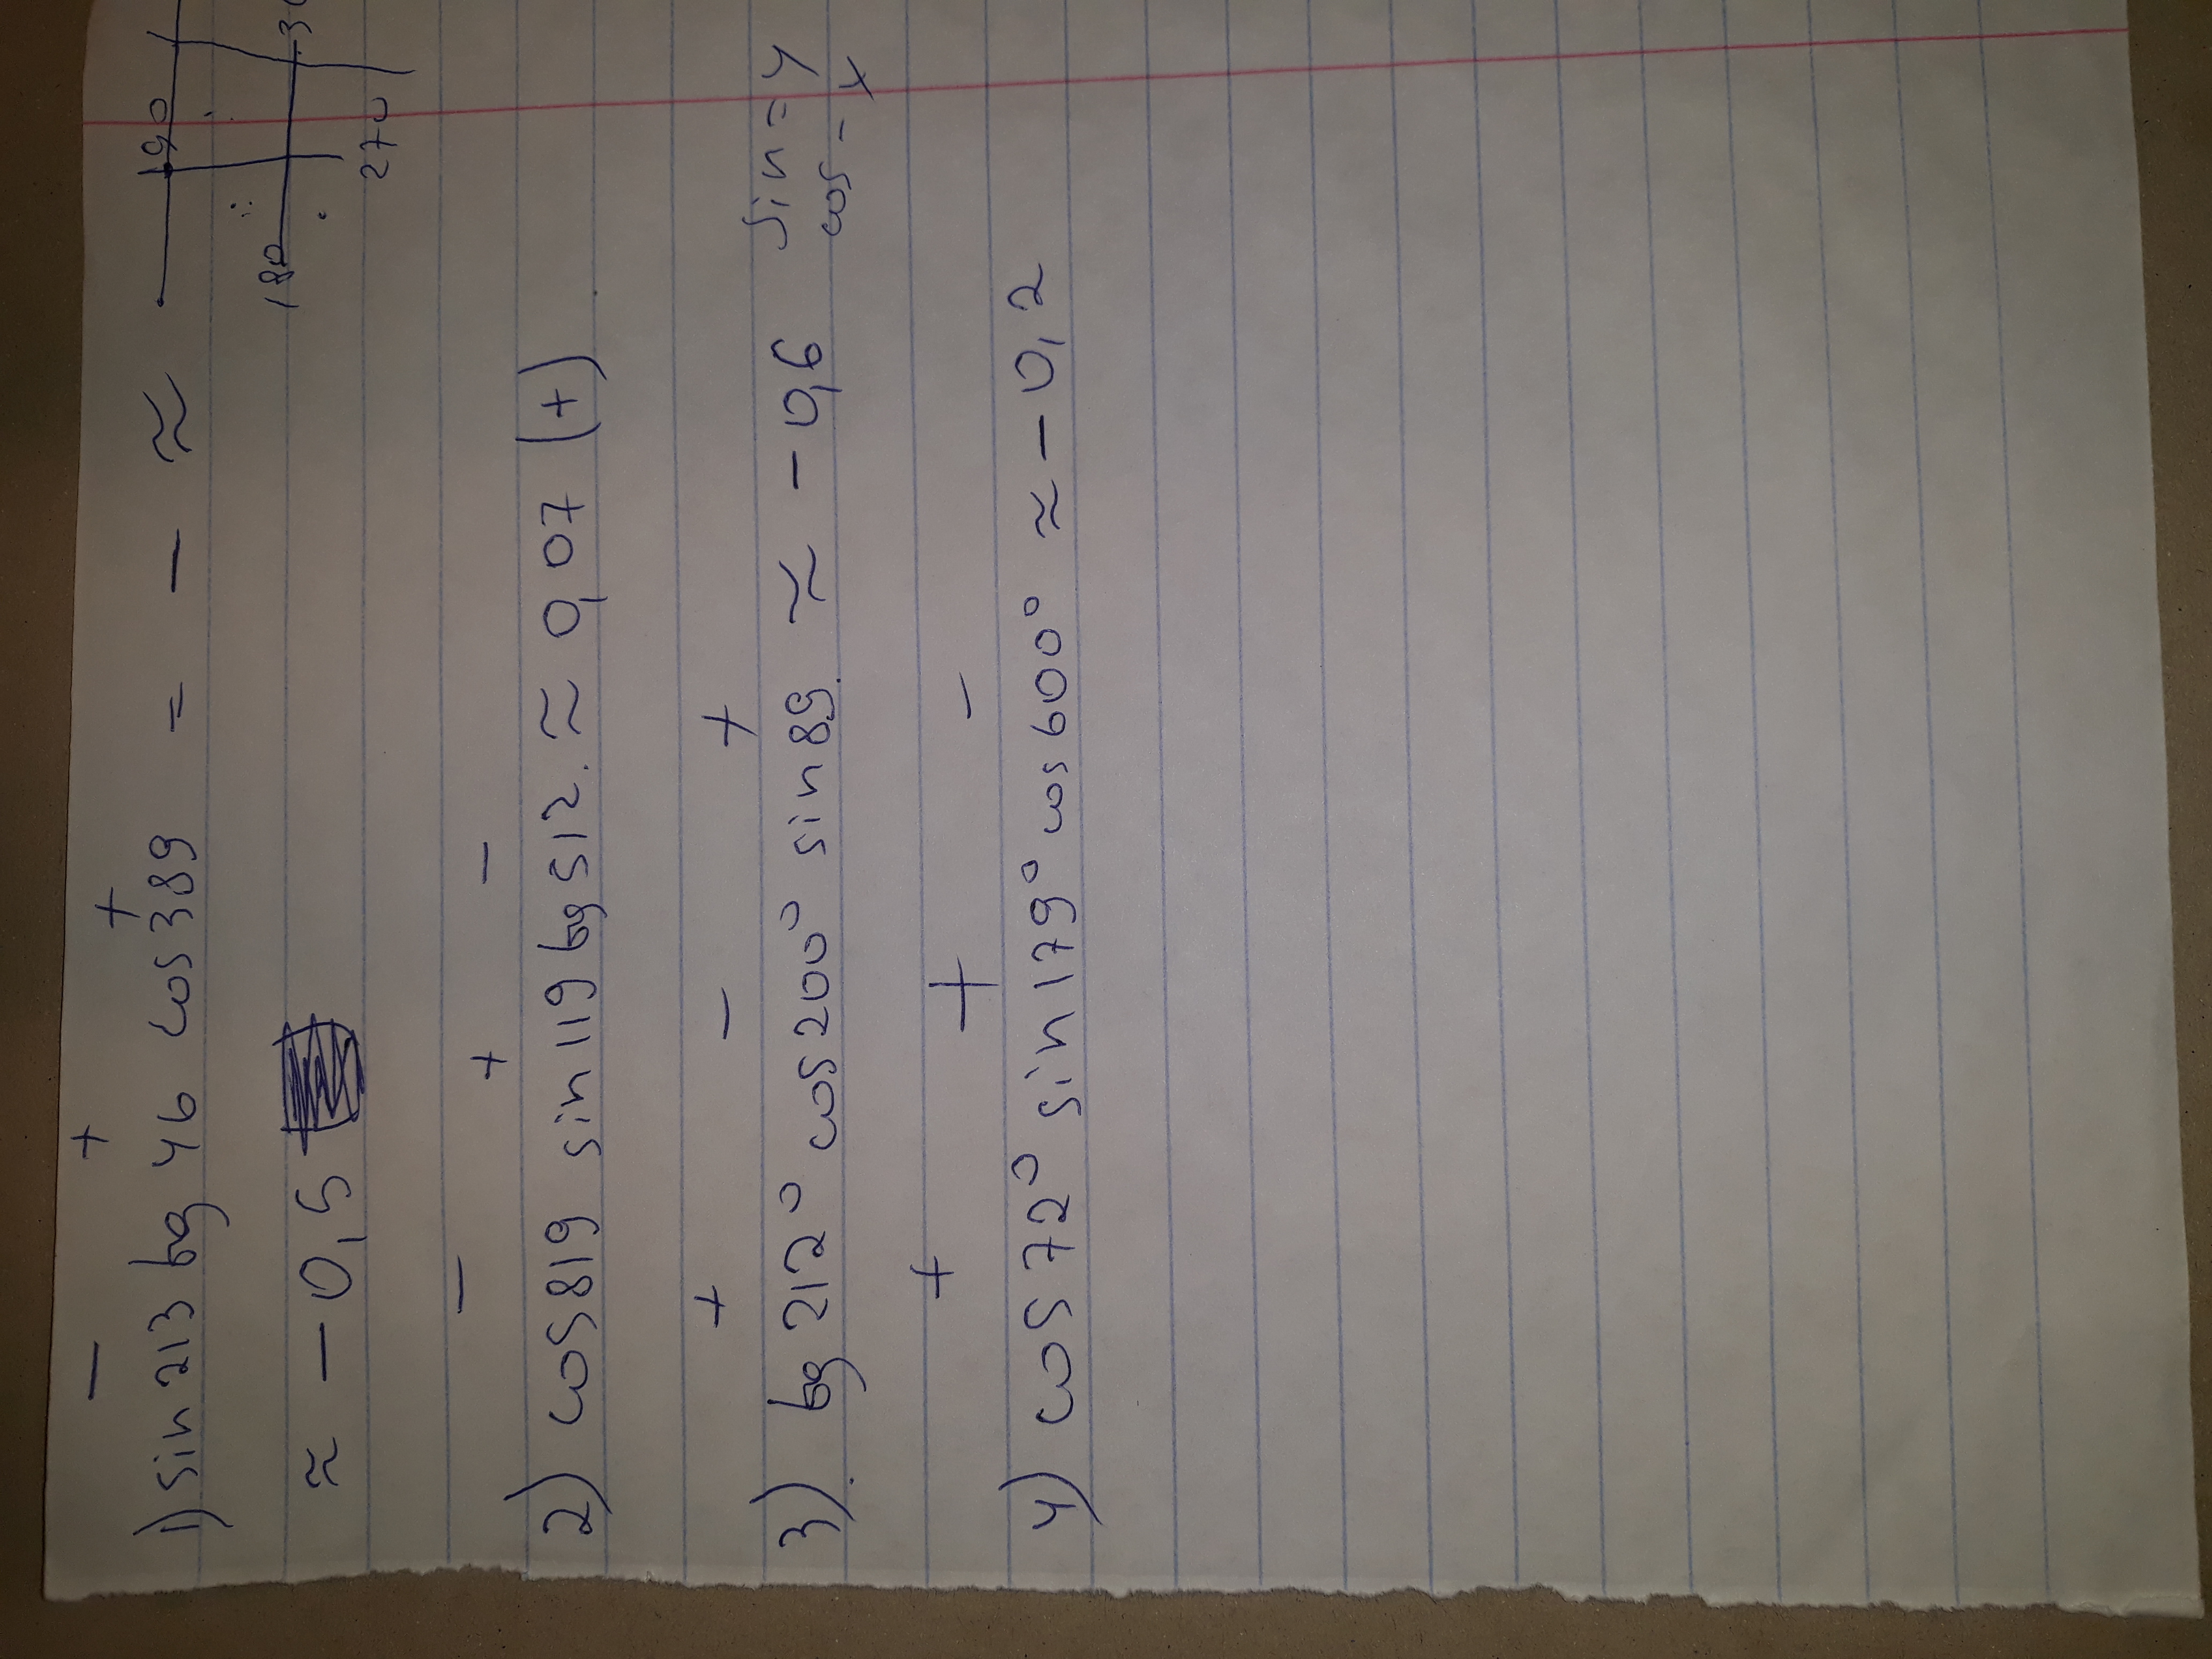 - + +
1) sin 213 tg 46 cos 389 = - ≈
≈ - 0,5
90
180 30
270
- + -
2) cos 819 sin 119 tg 512. ≈ 0,07 (+)
+ - +
3) tg 212° cos 200° sin 89. ≈ - 0,6
sin = y
cos - x
+ + -
4) cos 72° sin 179° cos 600° ≈ - 0,2